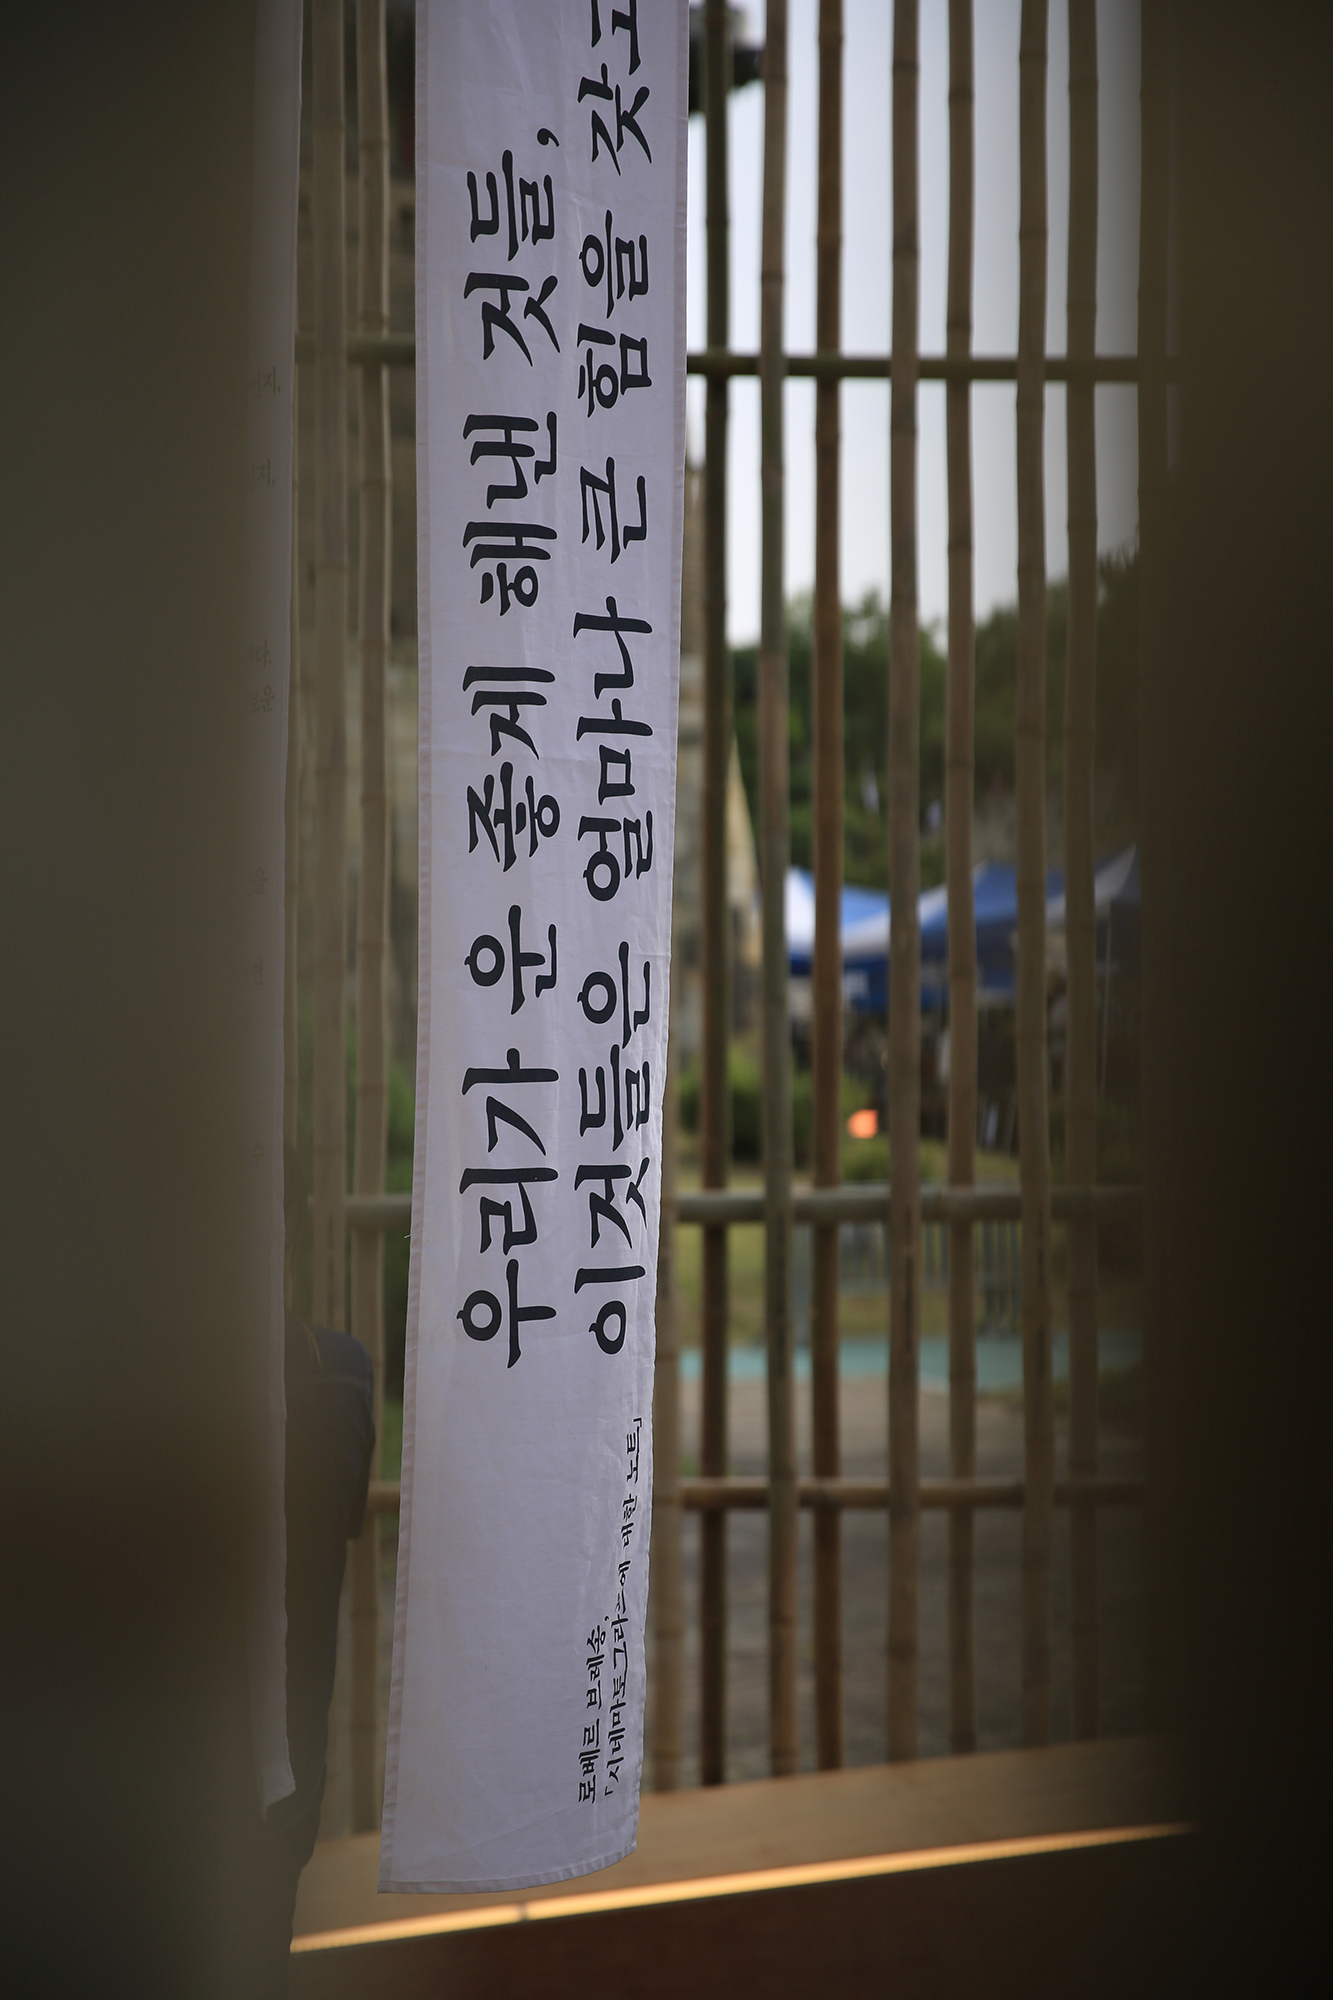 우리가 운 좋게 해낸 것들,
이것들은 얼마나 큰 힘을 갖고
로베르 브레송,
「시네마토그라프에 대한 노트」